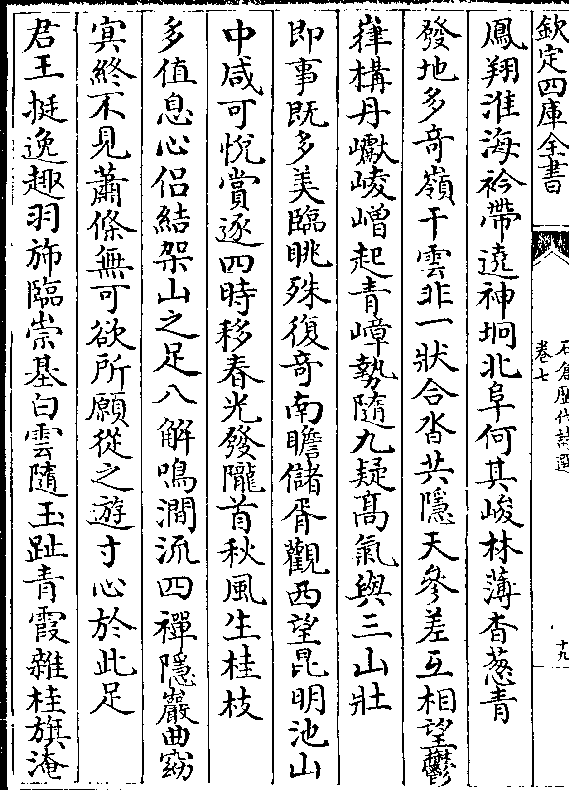 欽定四庫全書
石倉歷代詩選
卷七
十九
鳳翔淮海衿帶遶神坰北阜何其峻林薄杳葱青
發地多奇嶺干雲非一狀合沓共隱天參差互相望鬱
嵂構丹巘崚嶒起青嶂勢隨九疑髙氣與三山壯
即事既多美臨眺殊復奇南瞻儲胥觀西望昆明池山
中咸可悅賞逐四時移春光發隴首秋風生桂枝
多值息心侣結架山之足八解鳴澗流四禪隱巖曲窈
冥終不見蕭條無可欲所願從之遊寸心於此足
君王挺逸趣羽斾臨崇基白雲隨玉趾青霞雜桂旗淹